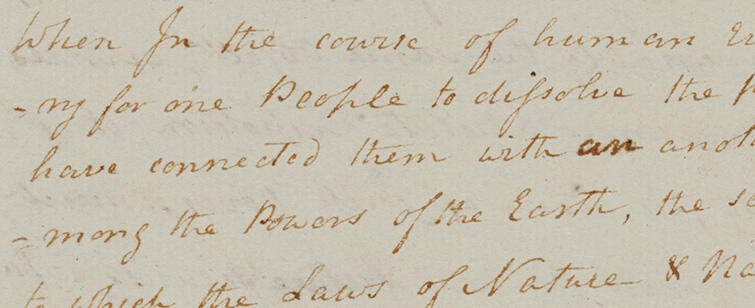 When In the course of human
-ry for one People to dissolve the
have connected them with an
-mong the Powers of the Earth, the
to which the Laws of Nature &